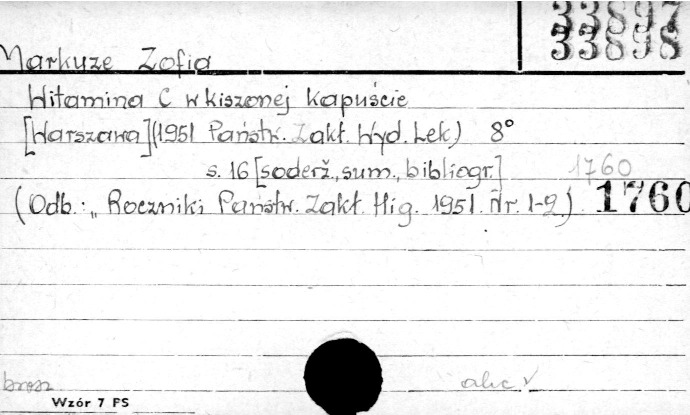 33897
33898
Markuze Zofia
Witamina C w kiszonej kapuście
[Warszawa] (1951 Państw. Zakł. Wyd. Lek.) 8°
s. 16 [soderž., sum., bibliogr.] 1760
(Odb.: „Roczniki Państw. Zakł. Hig. 1951. Nr. 1-2.) 1760
brosz
alic √
Wzór 7 FS